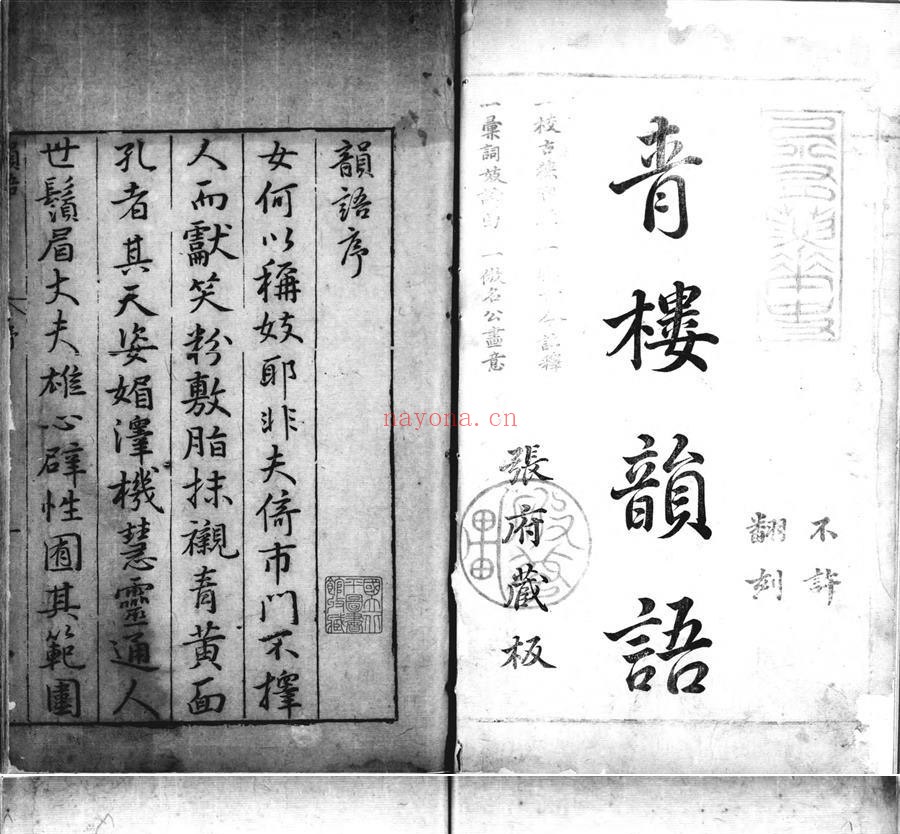 不許
翻刻
青樓韻語
張府藏板
一彙詞妓 一倣名公畫意
韻語序
女何以稱妓耶非夫倚市門不擇
人而獻笑粉敷脂抹襯青黃面
孔者其天姿媚澤機慧靈通人
世鬚眉丈夫雄心辟性囿其範圍
國立北平圖書館收藏
nayona.cn